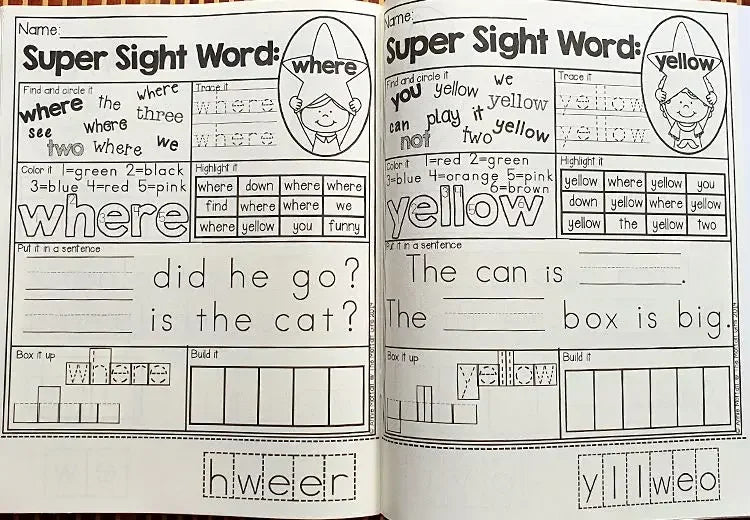 Name:
Super Sight Word:
where
Find and circle it
where the where
three
see where
two where we
Trace it
where
where
Color it 1=green 2=black
3=blue 4=red 5=pink
where
2
3 4 5
Highlight it
where down where where
find where where we
where yellow you funny
Put it in a sentence
did he go?
is the cat?
Box it up
where
Build it
hweer
Name:
Super Sight Word:
yellow
Find and circle it
you yellow we
yellow
can play it
not two yellow
Trace it
yellow
yellow
Color it 1=red 2=green
3=blue 4=orange 5=pink
6=brown
yellow
3 4
5 6
Highlight it
yellow where yellow you
down yellow where yellow
yellow the yellow two
Put it in a sentence
The can is .
The box is big.
Box it up
yellow
Build it
yllweo